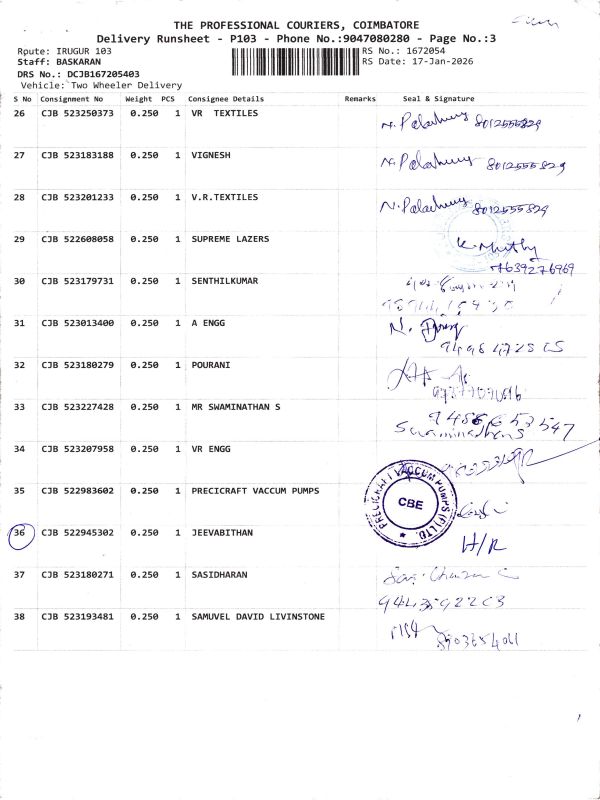 THE PROFESSIONAL COURIERS, COIMBATORE
Delivery Runsheet - P103 - Phone No.:9047080280 - Page No.:3
Rpute: IRUGUR 103
RS No.: 1672054
Staff: BASKARAN
RS Date: 17-Jan-2026
DRS No.: DCJB167205403
Vehicle: Two Wheeler Delivery
S No Consignment No Weight PCS Consignee Details Remarks Seal & Signature
26 CJB 523250373 0.250 1 VR TEXTILES 8012555829
27 CJB 523183188 0.250 1 VIGNESH 8012555829
28 CJB 523201233 0.250 1 V.R.TEXTILES 8012555829
29 CJB 522608058 0.250 1 SUPREME LAZERS
7639276969
30 CJB 523179731 0.250 1 SENTHILKUMAR
31 CJB 523013400 0.250 1 A ENGG
32 CJB 523180279 0.250 1 POURANI
33 CJB 523227428 0.250 1 MR SWAMINATHAN S
34 CJB 523207958 0.250 1 VR ENGG
35 CJB 522983602 0.250 1 PRECICRAFT VACCUM PUMPS
PRECICRAFT VACCUM PUMPS (P) LTD.
CBE
36 CJB 522945302 0.250 1 JEEVABITHAN H/R
37 CJB 523180271 0.250 1 SASIDHARAN
38 CJB 523193481 0.250 1 SAMUVEL DAVID LIVINSTONE